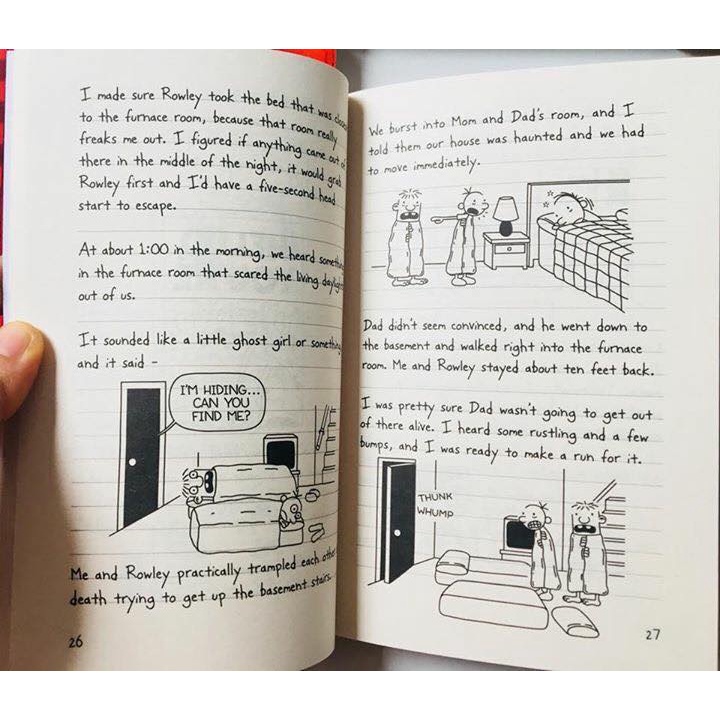 I made sure Rowley took the bed that was closer
to the furnace room, because that room really
freaks me out. I figured if anything came out of
there in the middle of the night, it would grab
Rowley first and I'd have a five-second head
start to escape.
At about 1:00 in the morning, we heard something
in the furnace room that scared the living daylights
out of us.
It sounded like a little ghost girl or something,
and it said -
I'M HIDING...
CAN YOU
FIND ME?
Me and Rowley practically trampled each other to
death trying to get up the basement stairs.
26
We burst into Mom and Dad's room, and I
told them our house was haunted and we had
to move immediately.
Dad didn't seem convinced, and he went down to
the basement and walked right into the furnace
room. Me and Rowley stayed about ten feet back.
I was pretty sure Dad wasn't going to get out
of there alive. I heard some rustling and a few
bumps, and I was ready to make a run for it.
THUNK
WHUMP
27